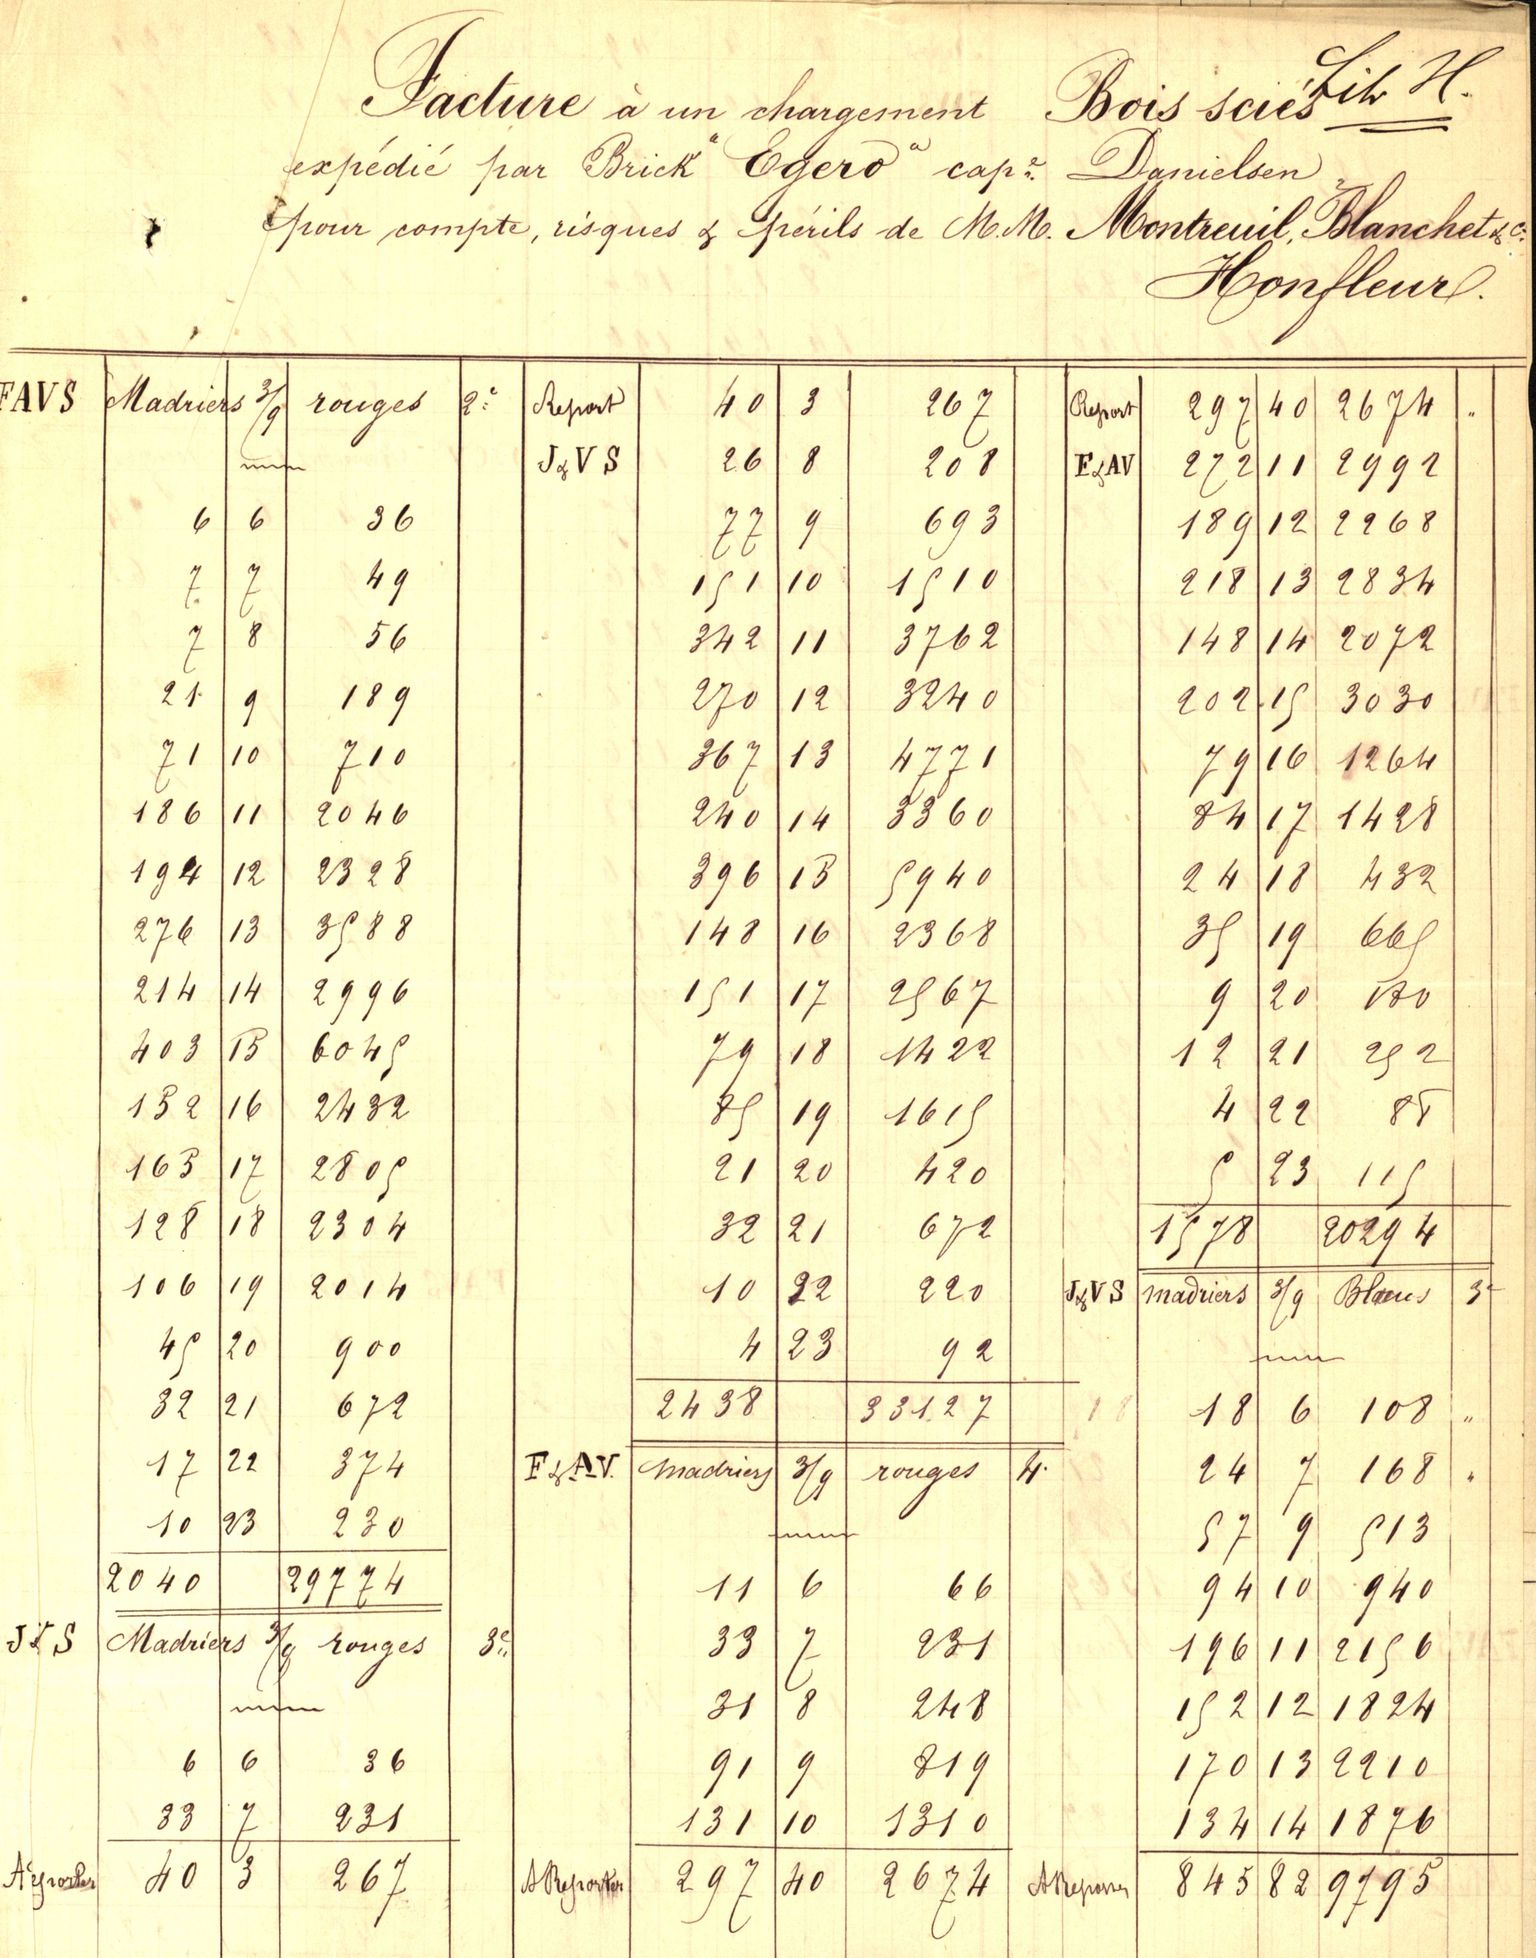 Facture à un chargement Bois sciés Litr H.
expédié par Brick "Egerö" cap: Danielsen
pour compte, risques & périls de M.M. Montreuil, Blanchet & C:
Honfleur.
FAVS Madriers 3/9 rouges 2e
6 6 36
7 7 49
7 8 56
21 9 189
71 10 710
186 11 2046
194 12 2328
276 13 3588
214 14 2996
403 15 6045
152 16 2432
165 17 2805
128 18 2304
106 19 2014
45 20 900
32 21 672
17 22 374
10 23 230
2040 29774
J&S Madriers 3/9 rouges 3e
6 6 36
33 7 231
A reporter 40 3 267
Report 40 3 267
J&VS 26 8 208
77 9 693
151 10 1510
342 11 3762
270 12 3240
367 13 4771
240 14 3360
396 15 5940
148 16 2368
151 17 2567
79 18 1422
85 19 1615
21 20 420
32 21 672
10 22 220
4 23 92
2438 33127
F&AV. madriers 3/9 rouges 4.
11 6 66
33 7 231
31 8 248
91 9 819
131 10 1310
A Reporter 297 40 2674
Report 297 40 2674 "
F&AV 272 11 2992
189 12 2268
218 13 2834
148 14 2072
202 15 3030
79 16 1264
84 17 1428
24 18 432
35 19 665
9 20 180
12 21 252
4 22 88
5 23 115
1578 20294
J&VS madriers 3/9 Blancs 3e
18 6 108 "
24 7 168 "
57 9 513
94 10 940
196 11 2156
152 12 1824
170 13 2210
134 14 1876
A Reporter 845 82 9795